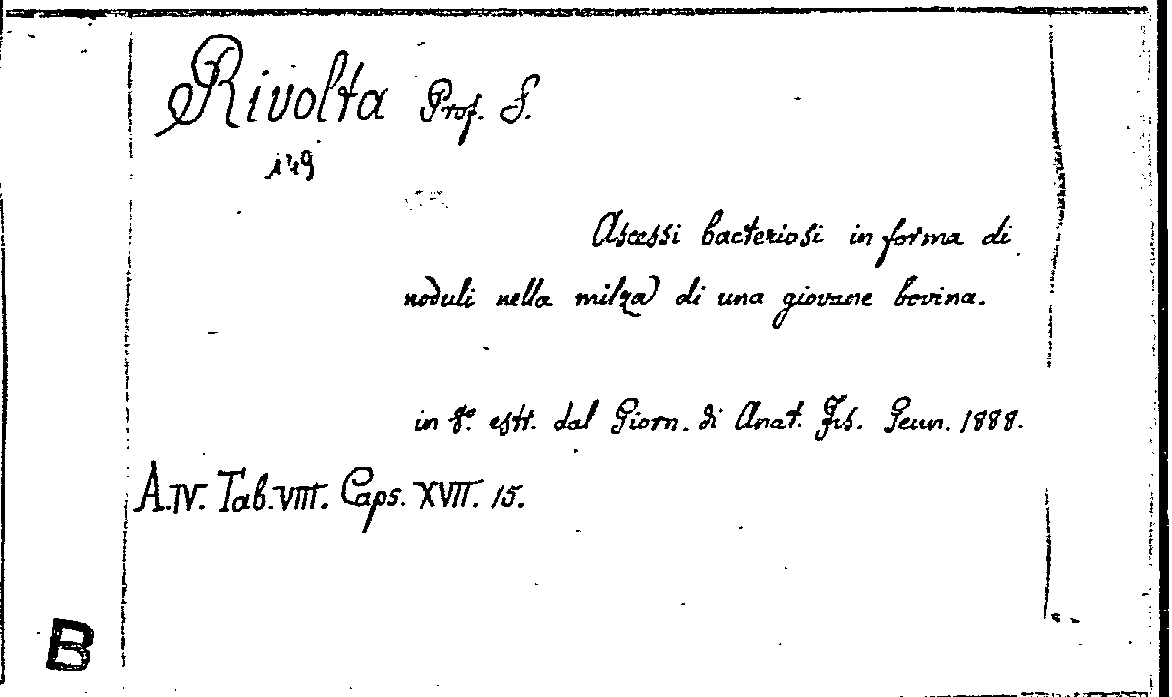 Rivolta Prof. S.
149
Ascessi bacteriosi in forma di
noduli nella milza di una giovane bovina.
in 8º. estr. dal Giorn. di Anat. Fis. Genn. 1888.
A.IV. Tab.VIII. Caps. XVII. 15.
B